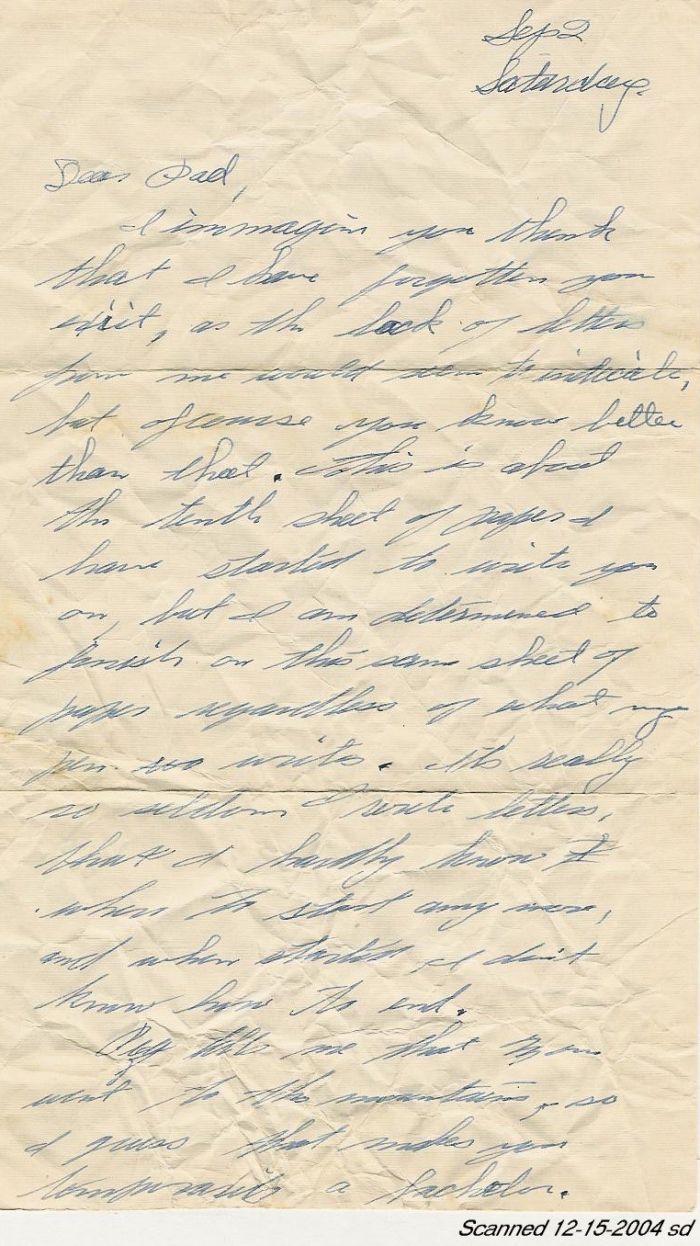 Sep 2
Saturday.
Dear Dad,
I immagin you think
that I have forgotten you
exist, as the lack of letters
from me would seem to indicate,
but of course you know better
than that. This is about
the tenth sheet of paper I
have started to write you
on, but I am determened to
finish on this same sheet of
paper regardless of what my
pen writes. It's really
so seldom I write letters,
that I hardly know
when to start any more,
and when started, I don't
know how to end.
Peg tells me that Mom
went to the mountains, so
I guess that makes you
temporarily a bachelor.
Scanned 12-15-2004 sd